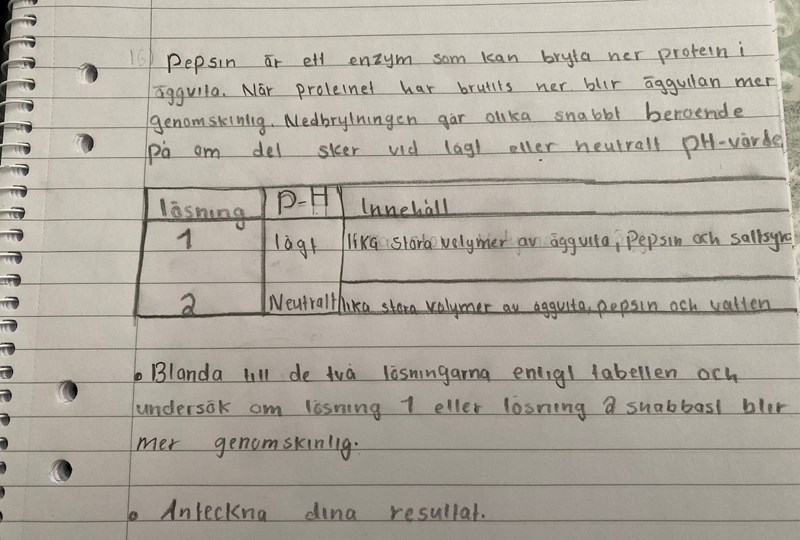 16) Pepsin är ett enzym som kan bryta ner protein i
äggvita. När proteinet har brutits ner blir äggvitan mer
genomskinlig. Nedbrytningen går olika snabbt beroende
på om det sker vid lågt eller neutralt pH-värde
lösning P-H Innehåll
1 lågt lika stora volymer av äggvita, Pepsin och saltsyra
2 Neutralt lika stora volymer av äggvita, pepsin och vatten
• Blanda till de två lösningarna enligt tabellen och
undersök om lösning 1 eller lösning 2 snabbast blir
mer genomskinlig.
• Anteckna dina resultat.